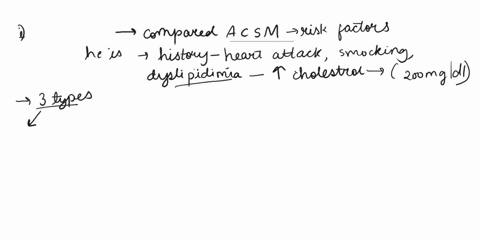 i) → compared ACSM → risk factors
he is → history - heart attack, smocking,
dyslipidimia - ↑ cholestrol → (200mg/dl)
→ 3 types